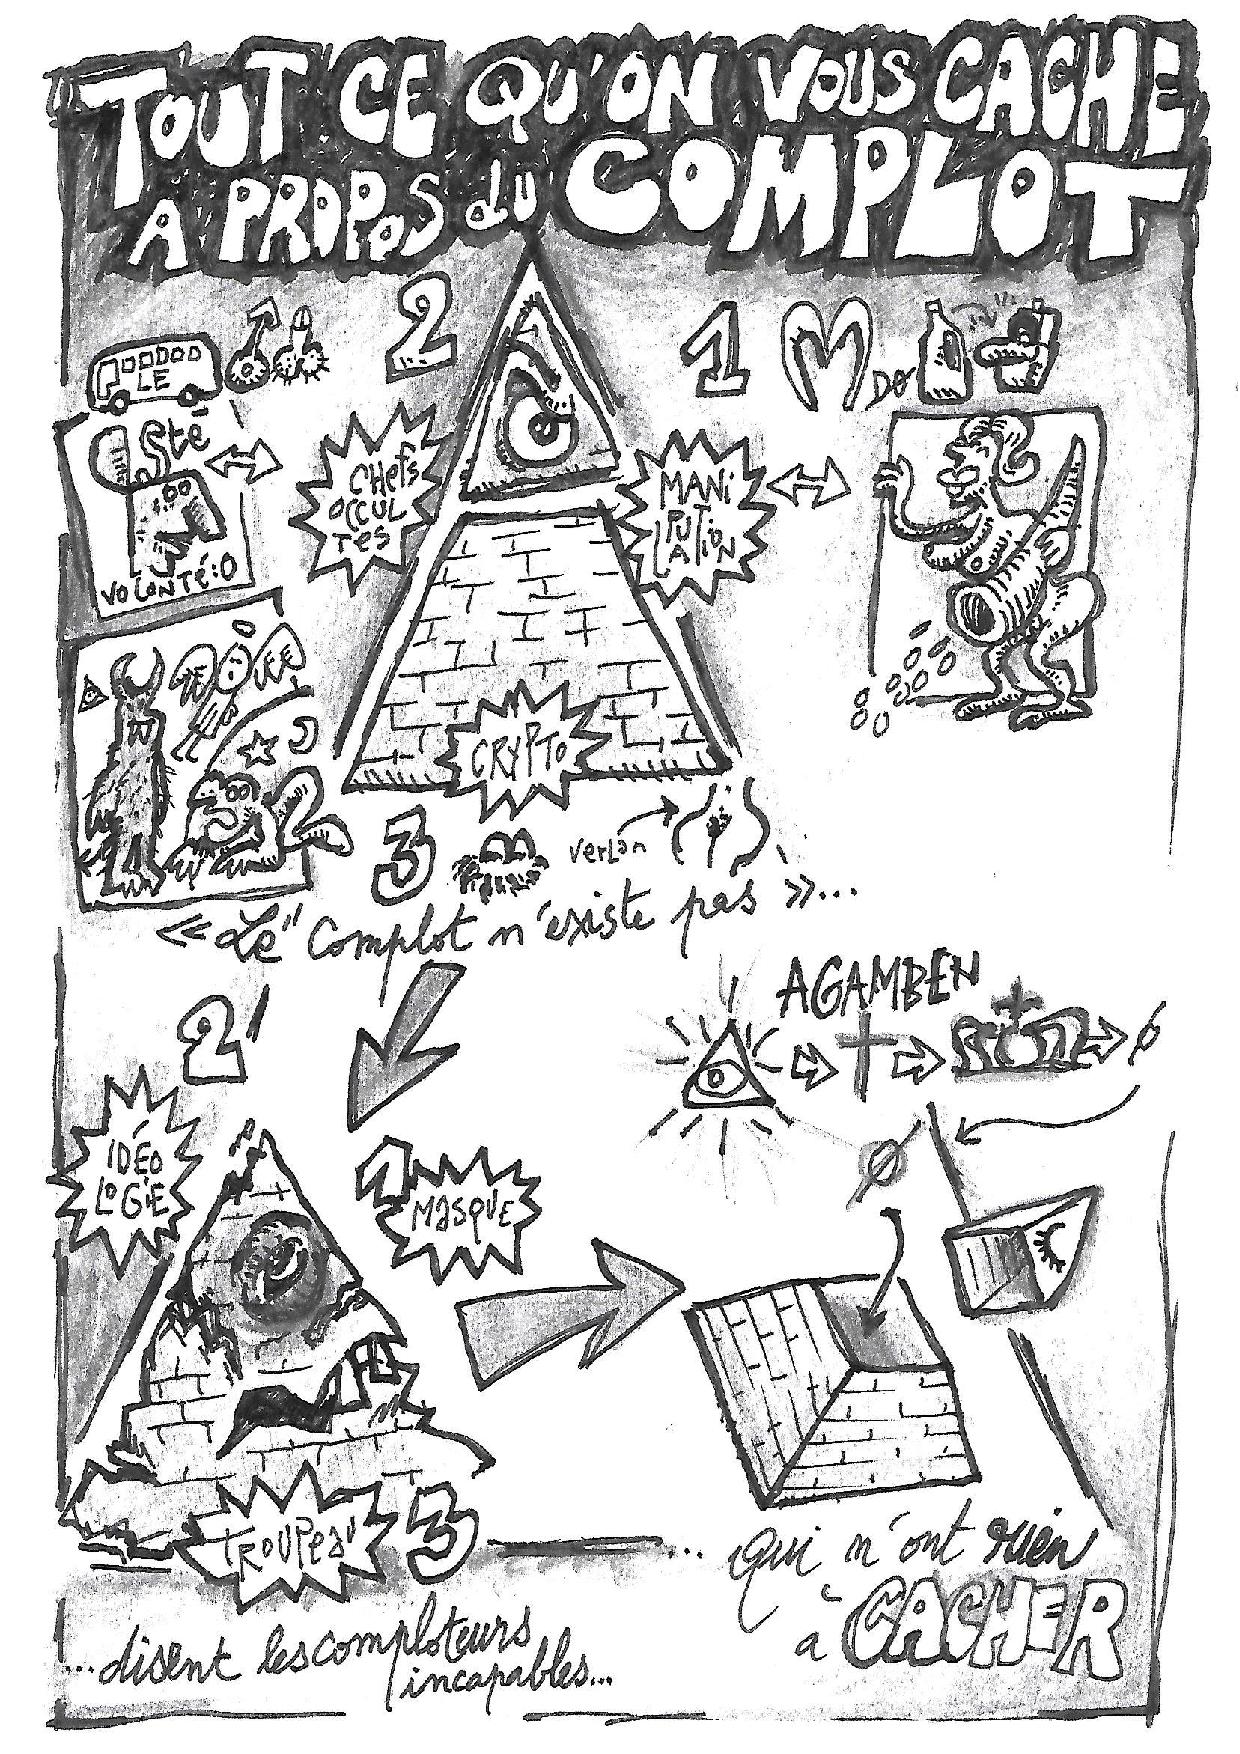 TOUT CE QU'ON VOUS CACHE
A PROPOS dU COMPLOT
2
1
M
DO
LE
Sté
VOLONTÉ:O
CHEfS
OCCUL
TES
MANi
PU
LATiON
CRYPTO
3
verlan
« "Le" Complot n'existe pas »...
2'
AGAMBEN
IDÉO
LOGIE
1
MASQUE
Ø
TROUPEAU
3
...disent les comploteurs
incapables...
... qui n'ont rien
à CACHER